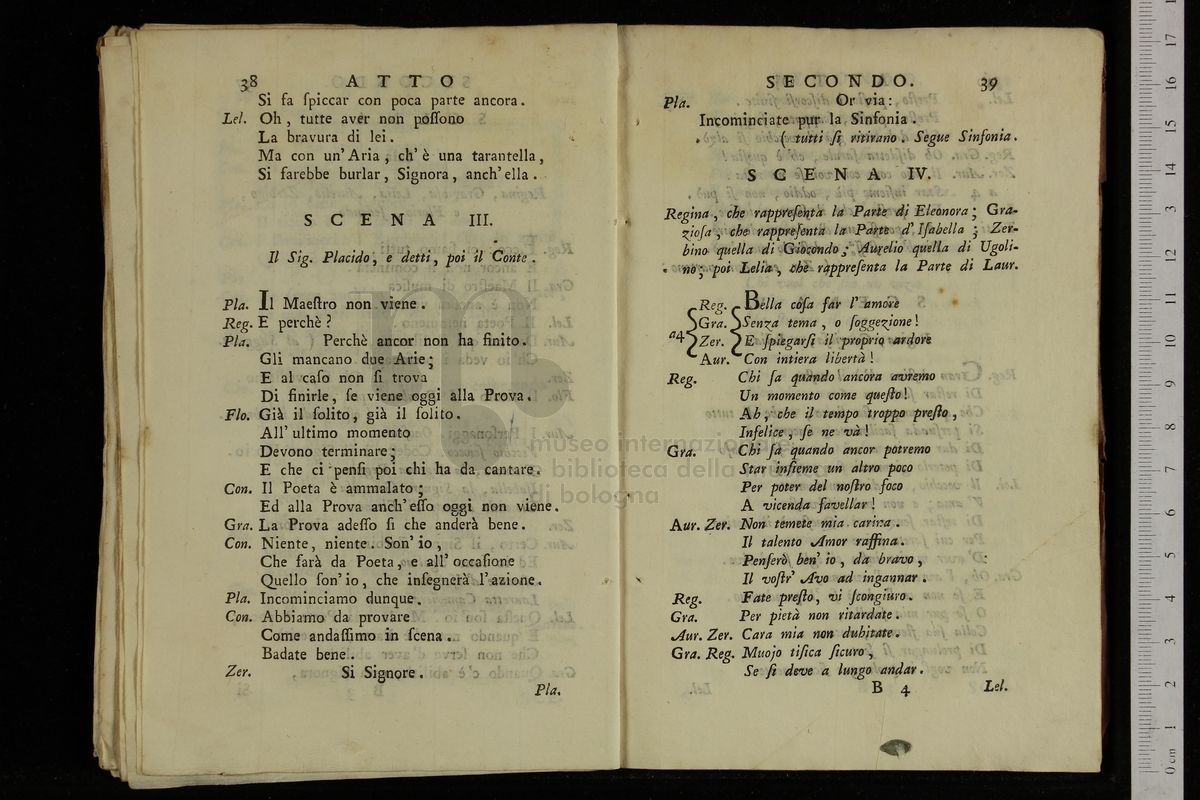 38 ATTO
Si fa ſpiccar con poca parte ancora.
Lel. Oh, tutte aver non poſſono
La bravura di lei.
Ma con un' Aria, ch' è una tarantella,
Si farebbe burlar, Signora, anch' ella.
SCENA III.
Il Sig. Placido, e detti, poi il Conte.
Pla. Il Maeſtro non viene.
Reg. E perchè?
Pla. Perchè ancor non ha finito.
Gli mancano due Arie;
E al caſo non ſi trova
Di finirle, ſe viene oggi alla Prova.
Flo. Già il ſolito, già il ſolito.
All' ultimo momento
Devono terminare;
E che ci penſi poi chi ha da cantare.
Con. Il Poeta è ammalato;
Ed alla Prova anch' eſſo oggi non viene.
Gra. La Prova adeſſo ſi che anderà bene.
Con. Niente, niente. Son' io,
Che farà da Poeta, e all' occaſione
Quello ſon' io, che inſegnerà l'azione.
Pla. Incominciamo dunque.
Con. Abbiamo da provare
Come andaſſimo in ſcena.
Badate bene.
Zer. Si Signore.
Pla.
SECONDO. 39
Pla. Or via:
Incominciate pur la Sinfonia.
( tutti ſi ritirano. Segue Sinfonia.
SCENA IV.
Regina, che rappreſenta la Parte di Eleonora; Gra-
zioſa, che rappreſenta la Parte d' Iſabella; Zer-
bino quella di Giocondo; Aurelio quella di Ugoli-
no; poi Lelia, che rappreſenta la Parte di Laur.
Reg. Bella coſa far l' amore
Gra. Senza tema, o ſoggezione!
a4 Zer. E ſpiegarſi il proprio ardore
Aur. Con intiera libertà!
Reg. Chi ſa quando ancora avremo
Un momento come queſto!
Ah, che il tempo troppo preſto,
Infelice, ſe ne và!
Gra. Chi ſa quando ancor potremo
Star inſieme un altro poco
Per poter del noſtro foco
A vicenda favellar!
Aur. Zer. Non temete mia carina.
Il talento Amor raffina.
Penſerò ben' io, da bravo,
Il voſtr' Avo ad ingannar.
Reg. Fate preſto, vi ſcongiuro.
Gra. Per pietà non ritardate.
Aur. Zer. Cara mia non dubitate.
Gra. Reg. Muojo tiſica ſicuro,
Se ſi deve a lungo andar.
B 4 Lel.
museo internazionale
biblioteca della
di bologna